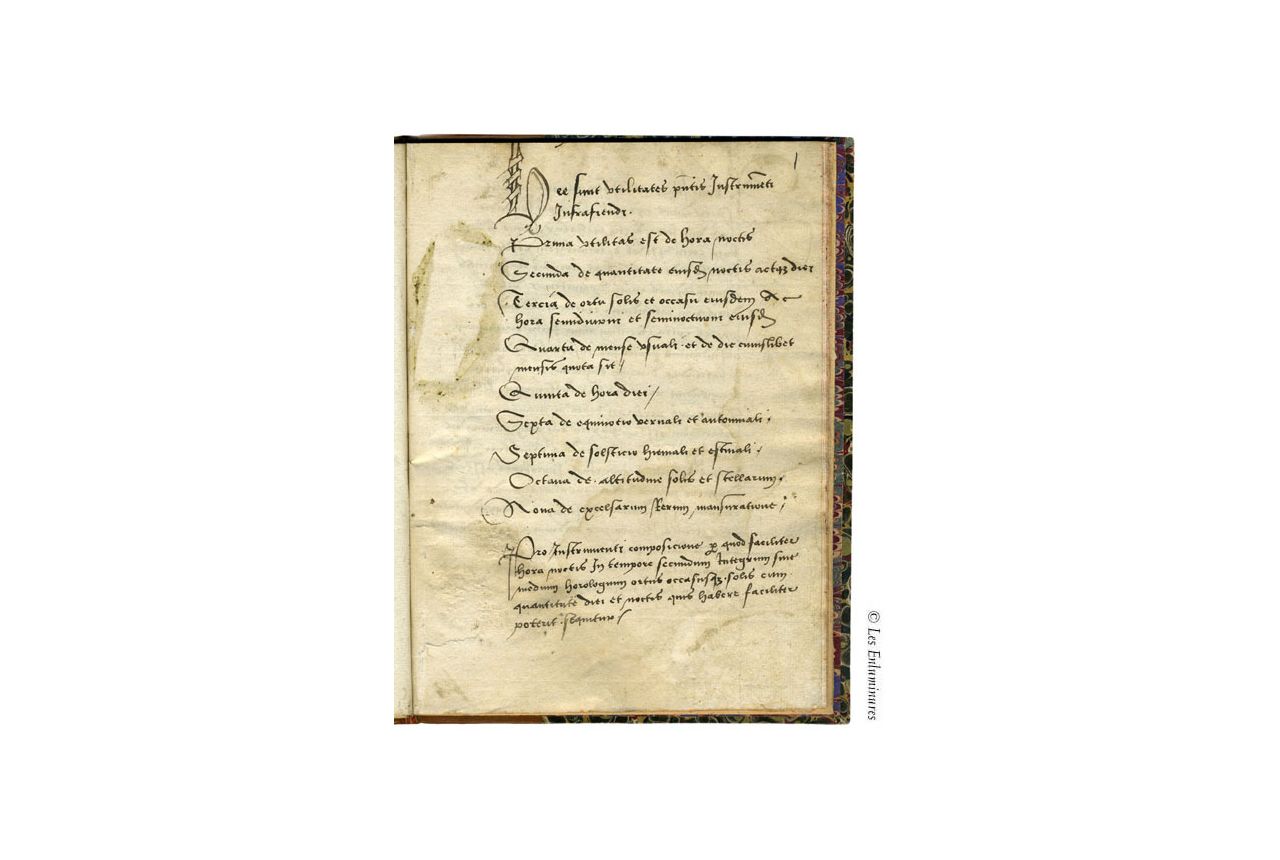 1
Hee sunt vtilitates pñtis Instrumẽti
Infrafiendi.
Prima vtilitas est de hora noctis
Secunda de quantitate eiusdẽ noctis ac diei
Tercia de ortu solis et occasu eiusdem Ac
hora semidiurni et seminocturni eiusdẽ
Quarta de mense vsuali et de die cuiuslibet
mensis quota sit /
Quinta de hora diei /
Sexta de equinotio vernali et autumnali ;
Septima de solsticio hiemali et estiuali ;
Octaua de altitudine solis et stellarum ;
Nona de excelsarum Rerum mansuratione ;
Pro Instrumenti composicione ꝑ quod faciliter
hora noctis In tempore secundum Integrum siue
medium horologium ortus occasusqꝫ solis cum
quantitate diei et noctis quis habere faciliter
poterit sequitur /
© Les Enluminures